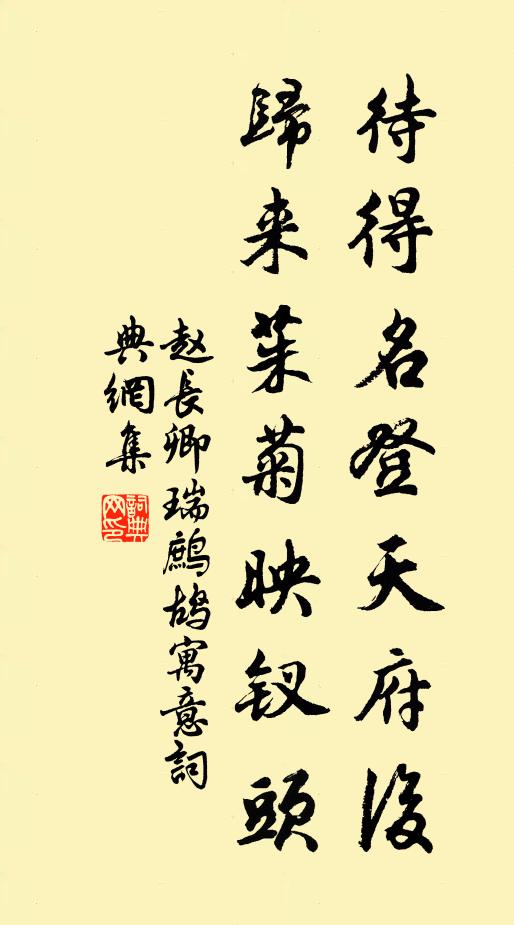 待得名登天府後
歸来茱菊映钗頭
赵長卿瑞鷓鴣寓意詞
典網集
詞典网印